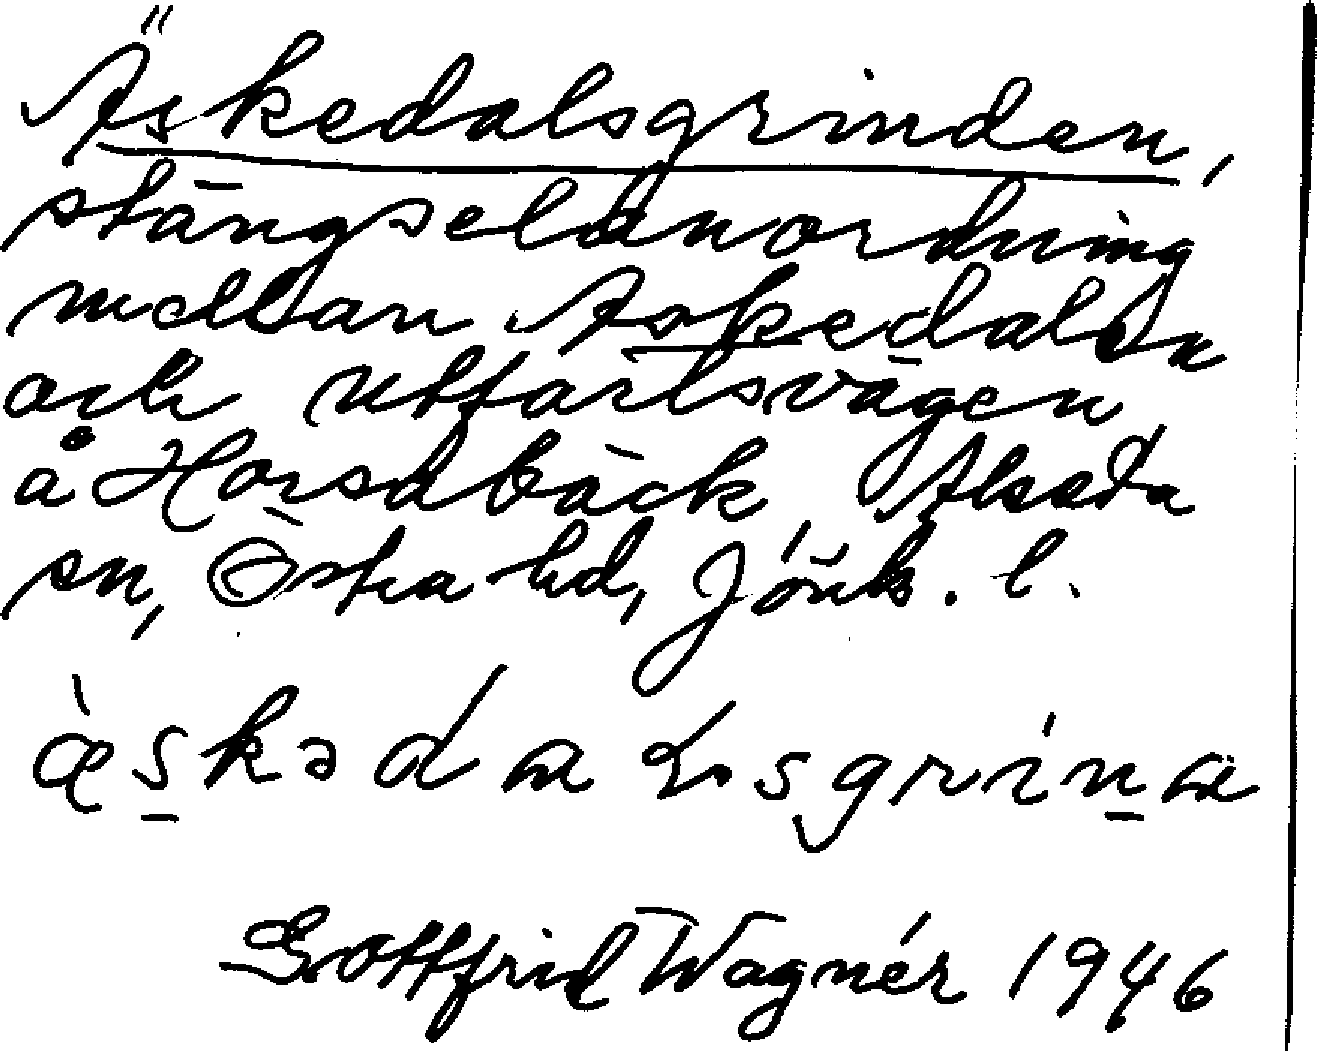 Äskedalsgrinden,
stängselanordning
mellan Askedalen
och utfartsvägen
å Horsabäck, Alseda
sn, Östra hd, Jönk. l.
æ̀skədaLsgrína
Gottfrid Wagnér 1946